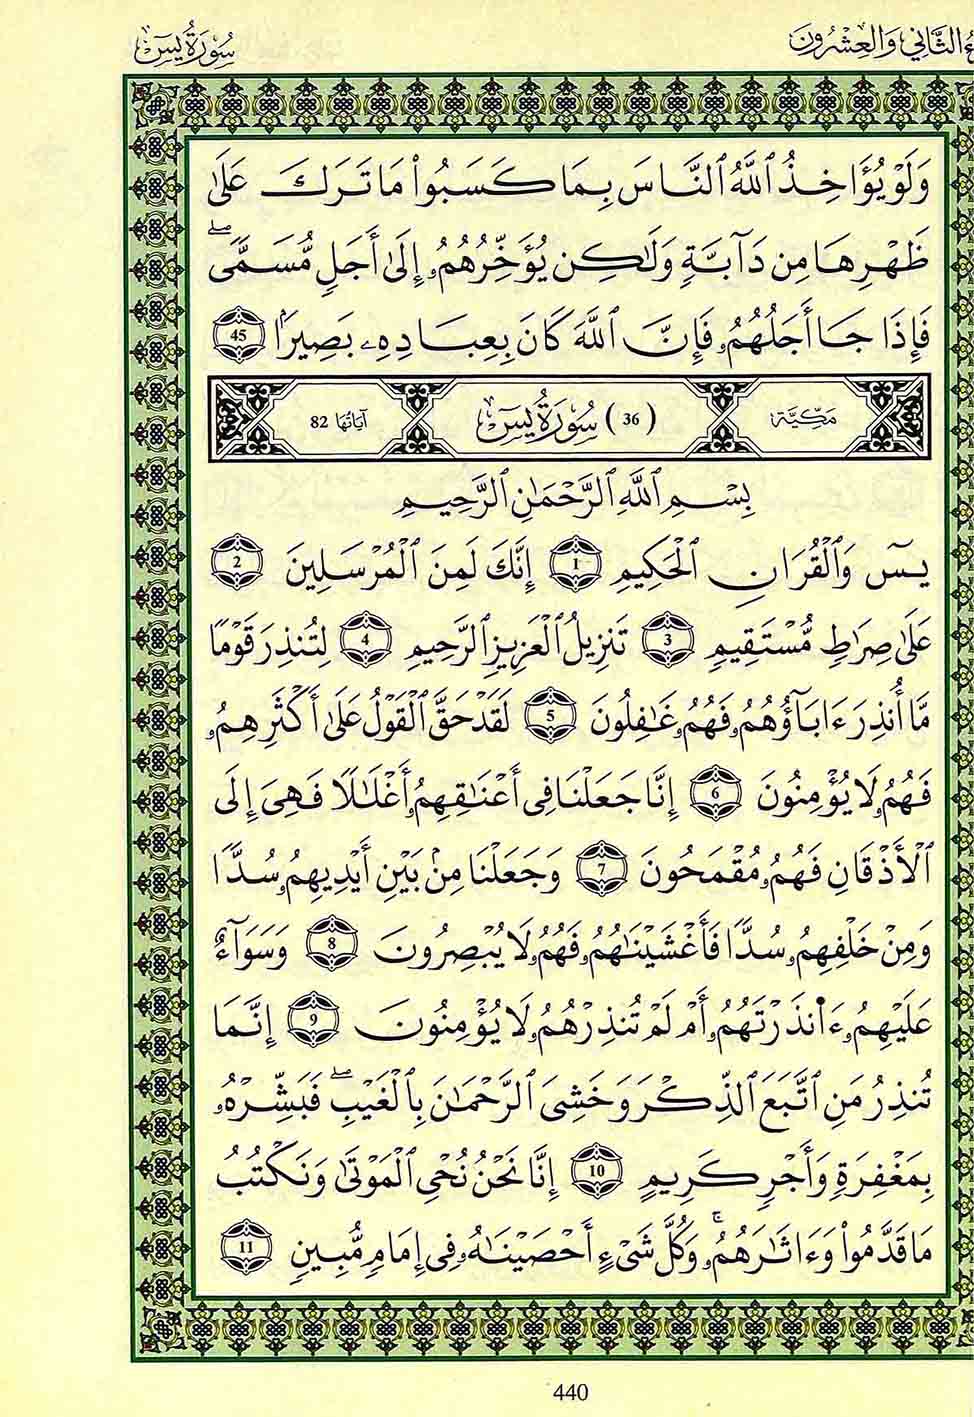 الثَّانِي وَالعِشْرُونَ
سُورَةُ يسٓ
وَلَوْ يُؤَاخِذُ ٱللَّهُ ٱلنَّاسَ بِمَا كَسَبُواْ مَا تَرَكَ عَلَىٰ
ظَهْرِهَا مِن دَآبَّةٍ وَلَٰكِن يُؤَخِّرُهُمُۥٓ إِلَىٰٓ أَجَلٍ مُّسَمًّىۖ
فَإِذَا جَا أَجَلُهُمُۥ فَإِنَّ ٱللَّهَ كَانَ بِعِبَادِهِۦ بَصِيرَاۢ 45
مَكِّيَّة (36) سُورَةُ يسٓ آيَاتُهَا 82
بِسْمِ ٱللَّهِ ٱلرَّحْمَٰنِ ٱلرَّحِيمِ
يسٓ وَٱلْقُرَانِ ٱلْحَكِيمِ 1 إِنَّكَ لَمِنَ ٱلْمُرْسَلِينَ 2
عَلَىٰ صِرَٰطٍ مُّسْتَقِيمٍ 3 تَنزِيلُ ٱلْعَزِيزِ ٱلرَّحِيمِ 4 لِتُنذِرَ قَوْمًا
مَّا أُنذِرَ ءَابَآؤُهُمُۥ فَهُمُۥ غَٰفِلُونَ 5 لَقَدْ حَقَّ ٱلْقَوْلُ عَلَىٰ أَكْثَرِهِمُۥ
فَهُمُۥ لَا يُؤْمِنُونَ 6 إِنَّا جَعَلْنَا فِى أَعْنَٰقِهِمُۥ أَغْلَٰلًا فَهِىَ إِلَى
ٱلْأَذْقَانِ فَهُمُۥ مُقْمَحُونَ 7 وَجَعَلْنَا مِنۢ بَيْنِ أَيْدِيهِمُۥ سُدًّا
وَمِنْ خَلْفِهِمُۥ سُدًّا فَأَغْشَيْنَٰهُمُۥ فَهُمُۥ لَا يُبْصِرُونَ 8 وَسَوَآءٌ
عَلَيْهِمُۥ ءَا۬نذَرْتَهُمُۥ أَمْ لَمْ تُنذِرْهُمُۥ لَا يُؤْمِنُونَ 9 إِنَّمَا
تُنذِرُ مَنِ ٱتَّبَعَ ٱلذِّكْرَ وَخَشِىَ ٱلرَّحْمَٰنَ بِٱلْغَيْبِۖ فَبَشِّرْهُۥ
بِمَغْفِرَةٍ وَأَجْرٍ كَرِيمٍ 10 إِنَّا نَحْنُ نُحْىِ ٱلْمَوْتَىٰ وَنَكْتُبُ
مَا قَدَّمُواْ وَءَاثَٰرَهُمُۥۚ وَكُلَّ شَىْءٍ أَحْصَيْنَٰهُۥ فِى إِمَامٍ مُّبِينٍ 11
440